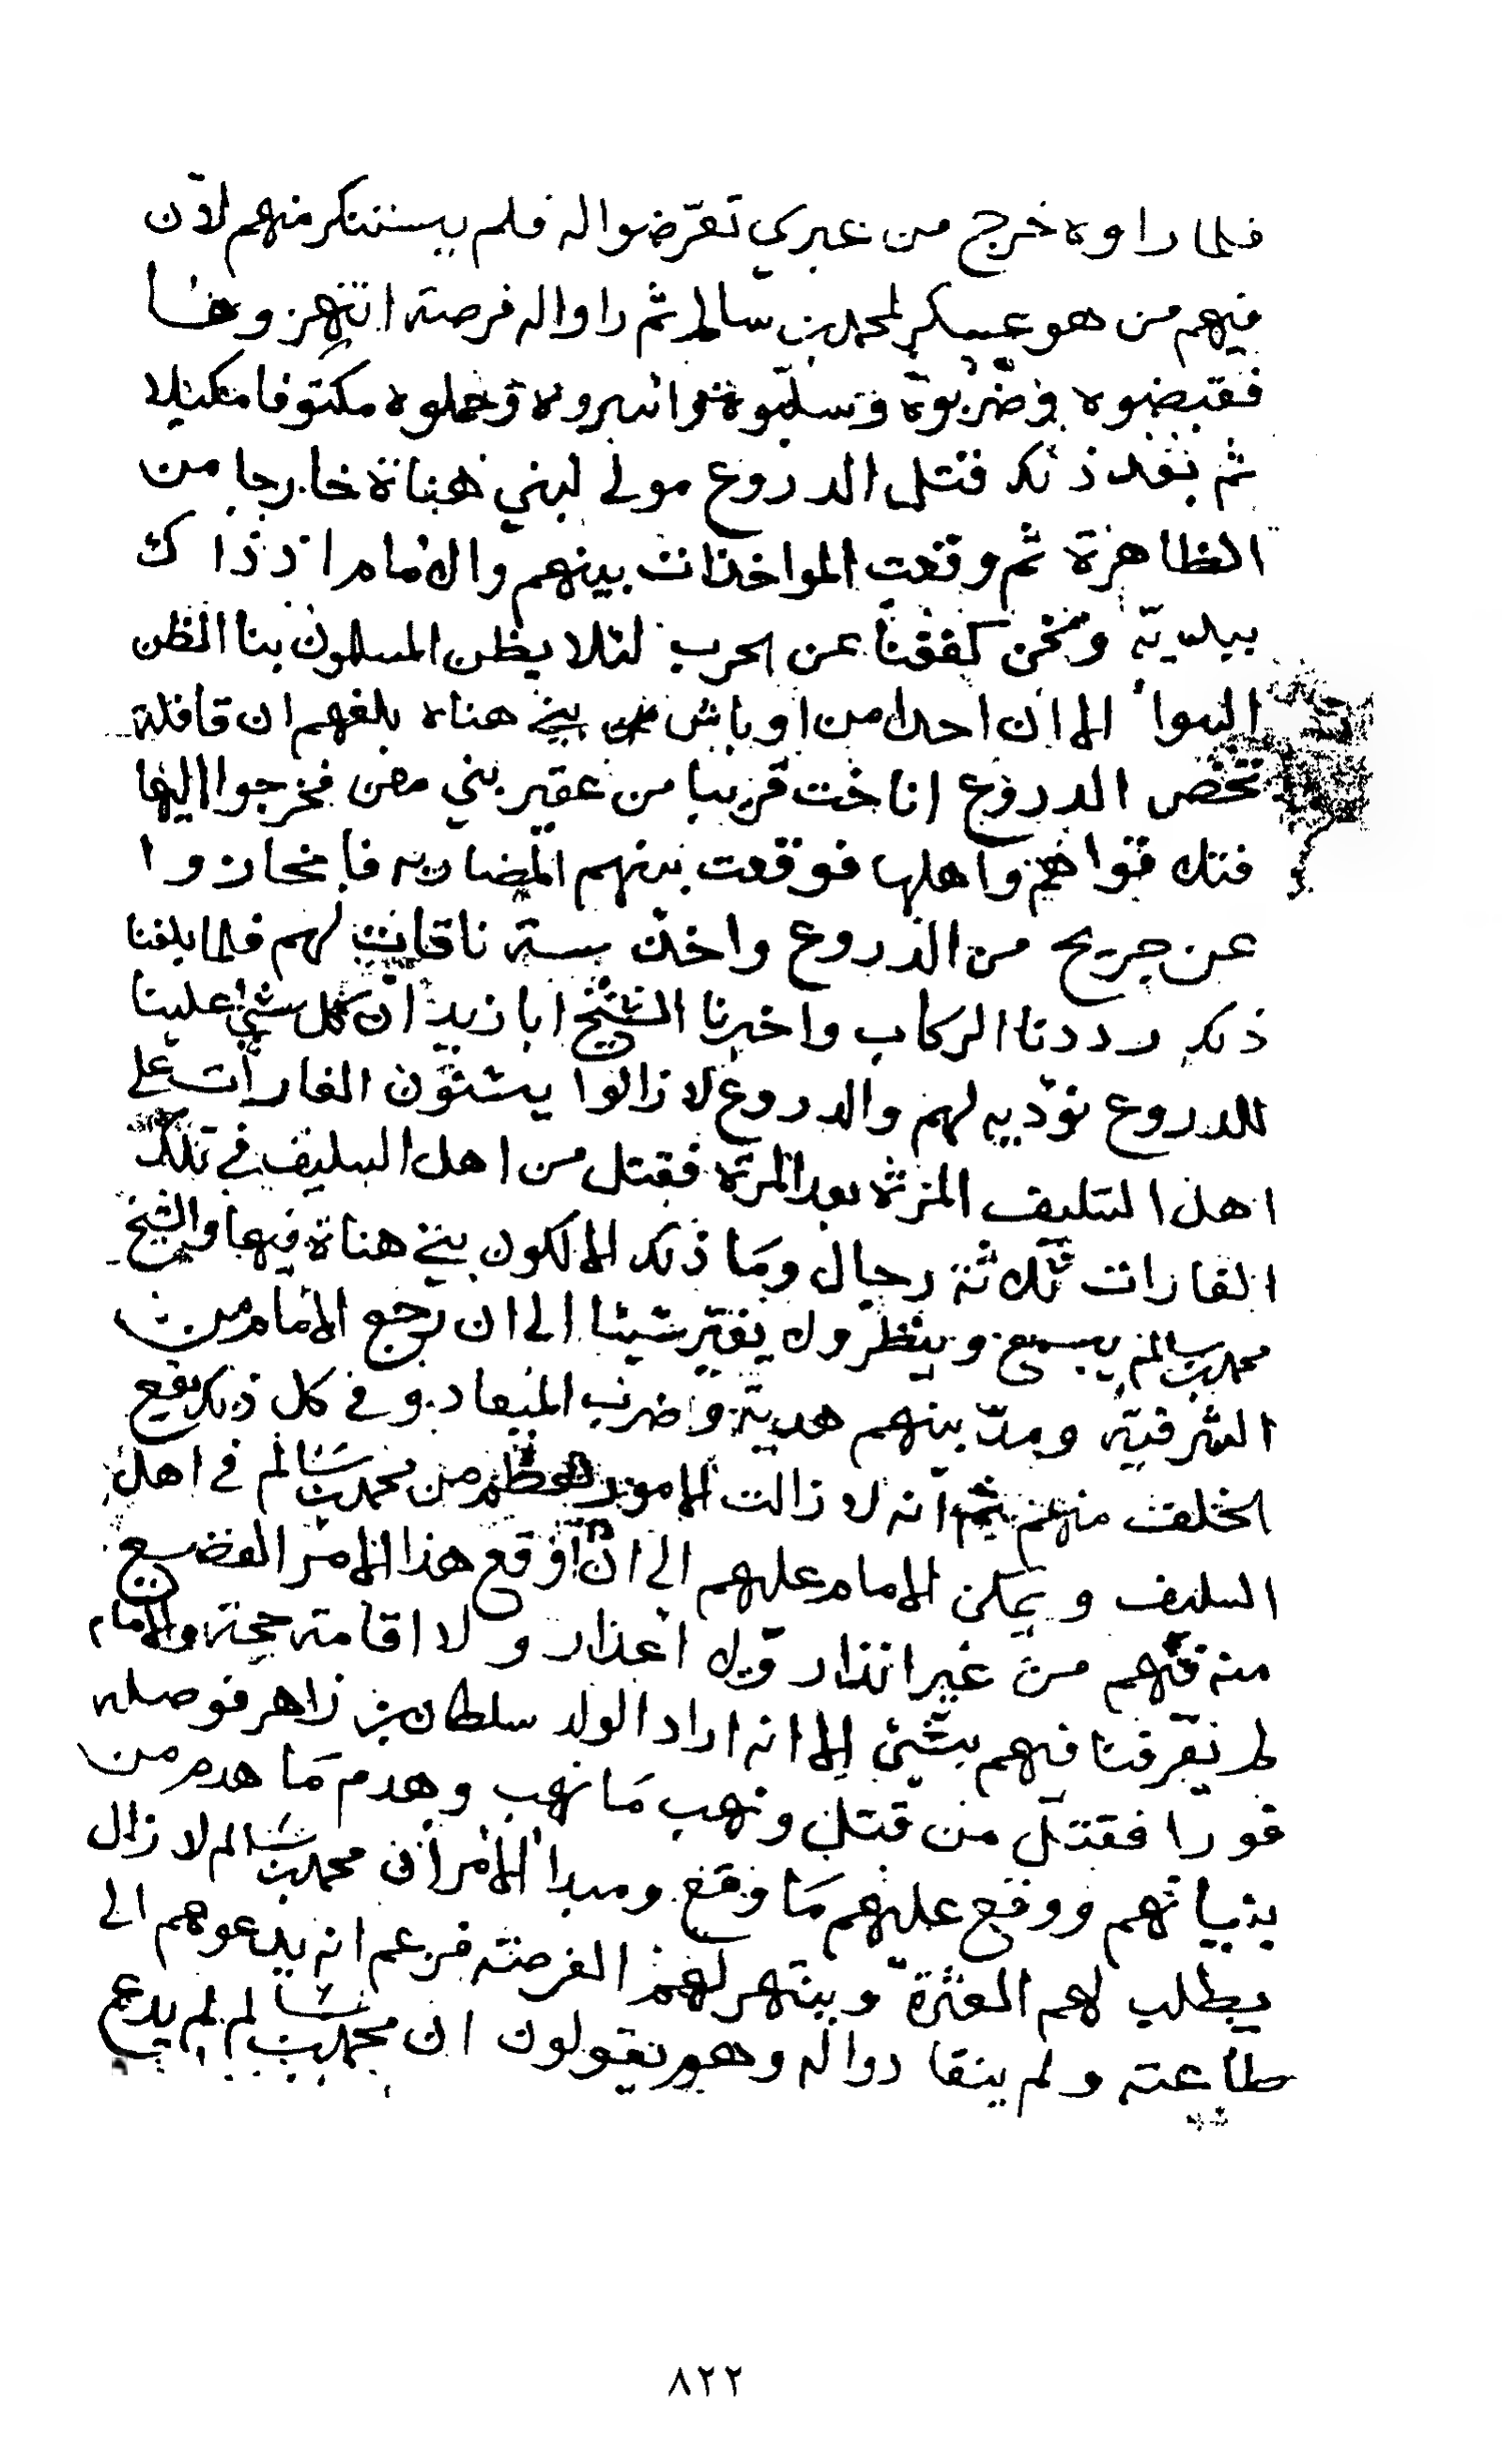 فلما راوه خرج من عبري تعرّضوا له فلم يستنكر منهم لأن
فيهم من هو عسكر لمحمد بن سالم ثم راوا له فرصة انتهزوها
فقبضوه وضربوه وسلبوه واسروه وحملوه مكتوفا مكبلا
ثم بعد ذلك قتل الدروع مولى لبني هناة خارجا من
الظاهرة ثم وقعت المواخذات بينهم والامام اذ ذاك
ببلدية ونحن كففنا عن الحرب لئلا يظن المسلمون بنا الظن
السوا الا ان احدا من اوباش بني هناه بلغهم ان قافلة
تخص الدروع اناخت قريبا من عقير بني معن فخرجوا اليها
فتلاقوا هم واهلها فوقعت بينهم المضاربه فانحازوا
عن جريح من الدروع واخذ ستة ناقات لهم فلما بلغنا
ذلك رددنا الركاب واخبرنا الشيخ ابا زيد ان كل شي علينا
للدروع نؤديه لهم والدروع لا زالوا يشنون الغارات على
اهل السليف المرة بعد المرة فقتل من اهل السليف في تلك
الغارات ثلاثة رجال وما ذلك الا لكون بني هناة فيها والشيخ
محمد بن سالم يسمع وينظر ولا يغير شيئا الى ان رجع الامام من
الشرقية ومدّ بينهم هدية وضرب الميعاد وفي كل ذلك يقع
الخلف منهم ثم انه لا زالت الامور من محمد بن سالم في اهل
السليف ويمكن الامام عليهم الى ان اوقع هذا الامر الفضيع
منه فيهم من غير انذار ولا اعذار ولا اقامة حجة والامام
لم يعرفنا فيهم بشئ الا انه اراد الولد سلطان بن زاهر فوصله
فورا فقتل من قتل ونهب ما نهب وهدم ما هدم من
بنياتهم ووقع عليهم ما وقع ومبدا الامر ان محمد بن سالم لا زال
يطلب لهم العثرة وينتهز لهم الفرصة فزعم انه يدعوهم الى
طاعته ولم ينقادوا له وهم يقولون ان محمد بن سالم لم يدع
٨٢٢